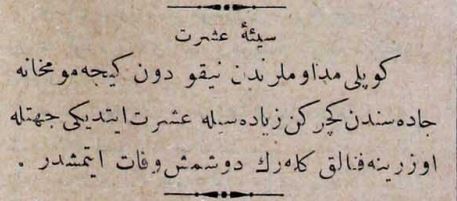 سیئهٔ عشرت
كوپلی مداوملرندن نیقو دون كیجه مومخانه
جاده‌سندن كچركن زیاده‌سیله عشرت ایتدیكی جهتله
اوزرینه فنالق كله‌رك دوشمش وفات ایتمشدر .